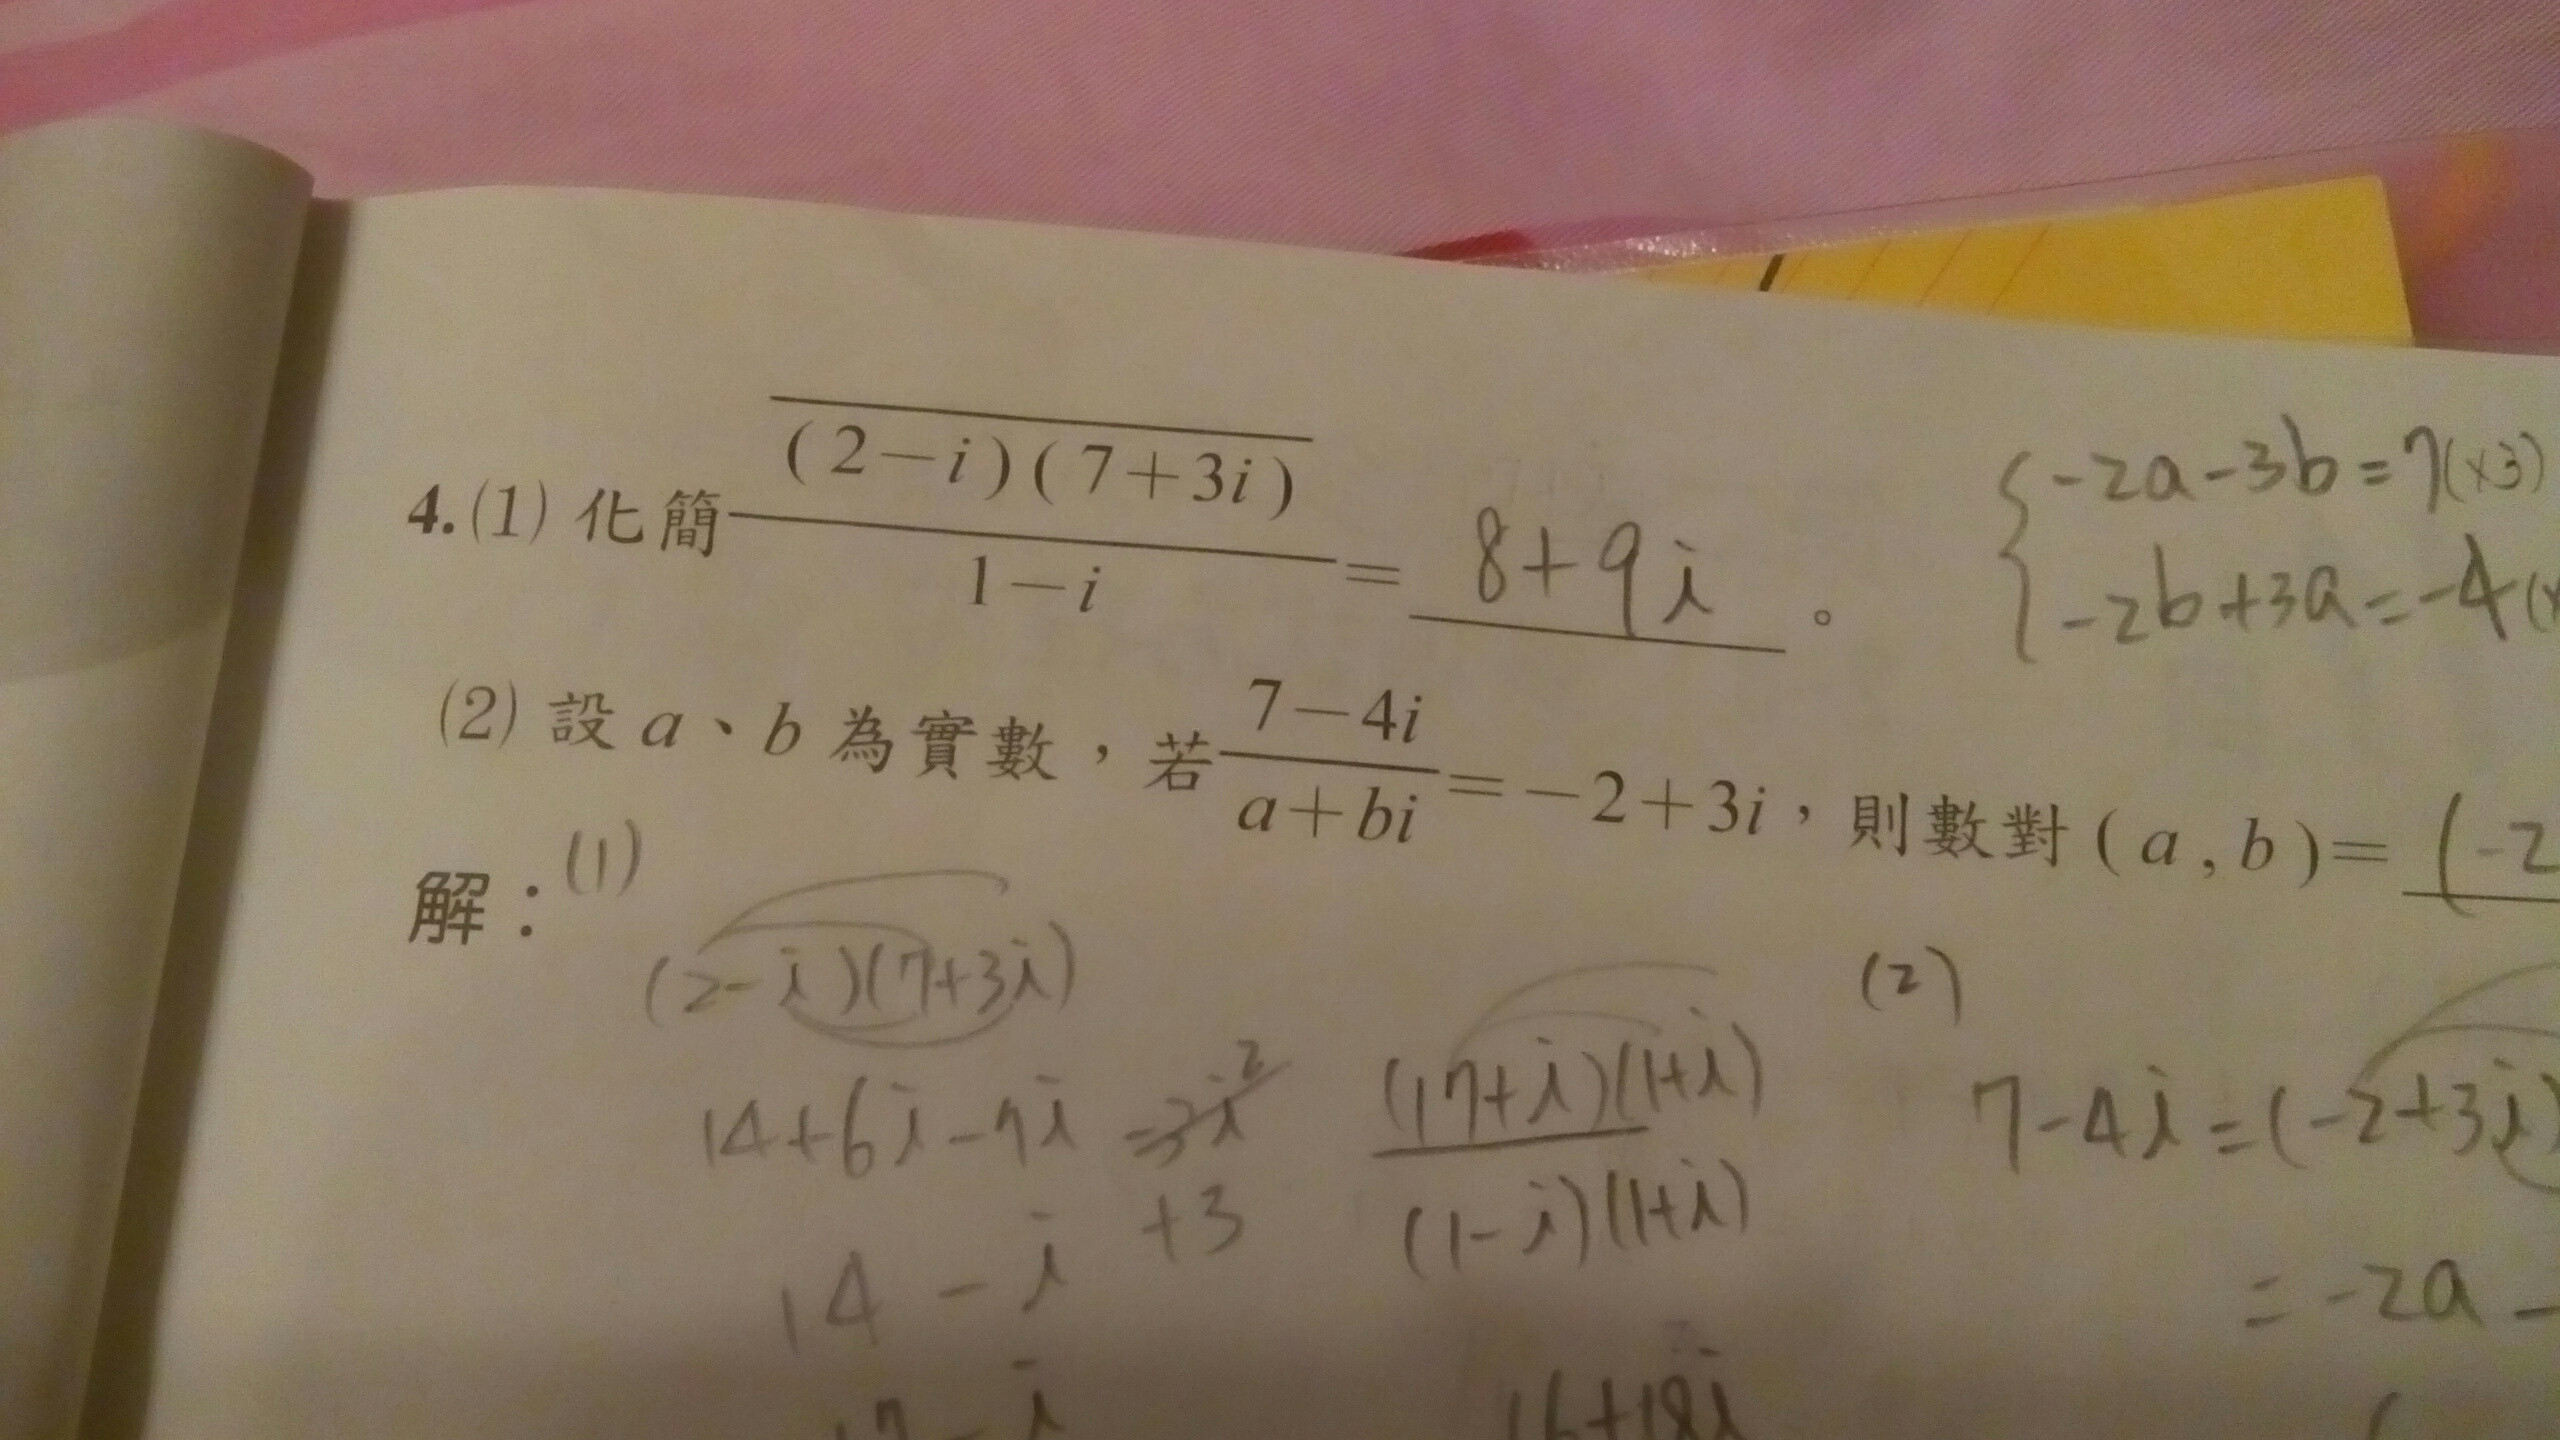 4.(1) 化簡 \overline{(2-i)(7+3i)} / (1-i) = 8+9i 。
-2a-3b=7(×3)
-2b+3a=-4(×
(2) 設 a、b 為實數，若 (7-4i)/(a+bi) = -2+3i，則數對 (a,b)= (-2
解：(1)
(2-i)(7+3i)
14+6i-7i -3i²
+3
14 - i
17 - i
(17+i)(1+i)
(1-i)(1+i)
16+18i
(2)
7-4i=(-2+3i)
=-2a-